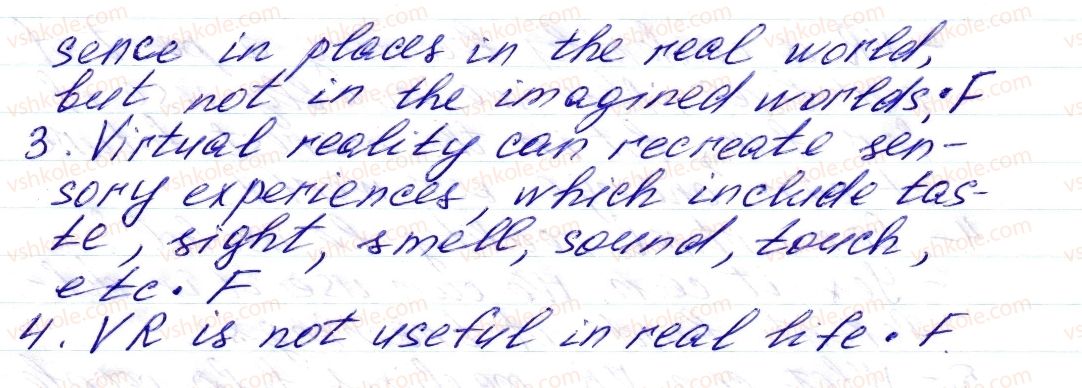 sence in places in the real world,
but not in the imagined worlds. F
3. Virtual reality can recreate sen-
sory experiences, which include tas-
te, sight, smell, sound, touch,
etc. F
4. VR is not useful in real life. F